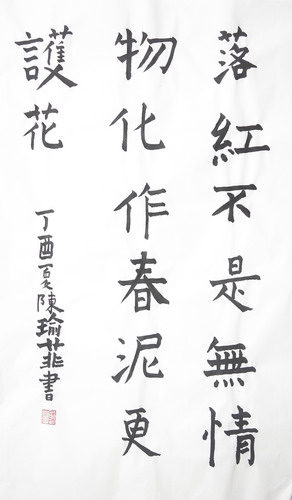 落紅不是無情
物化作春泥更
護花
丁酉夏陳瑜菲書